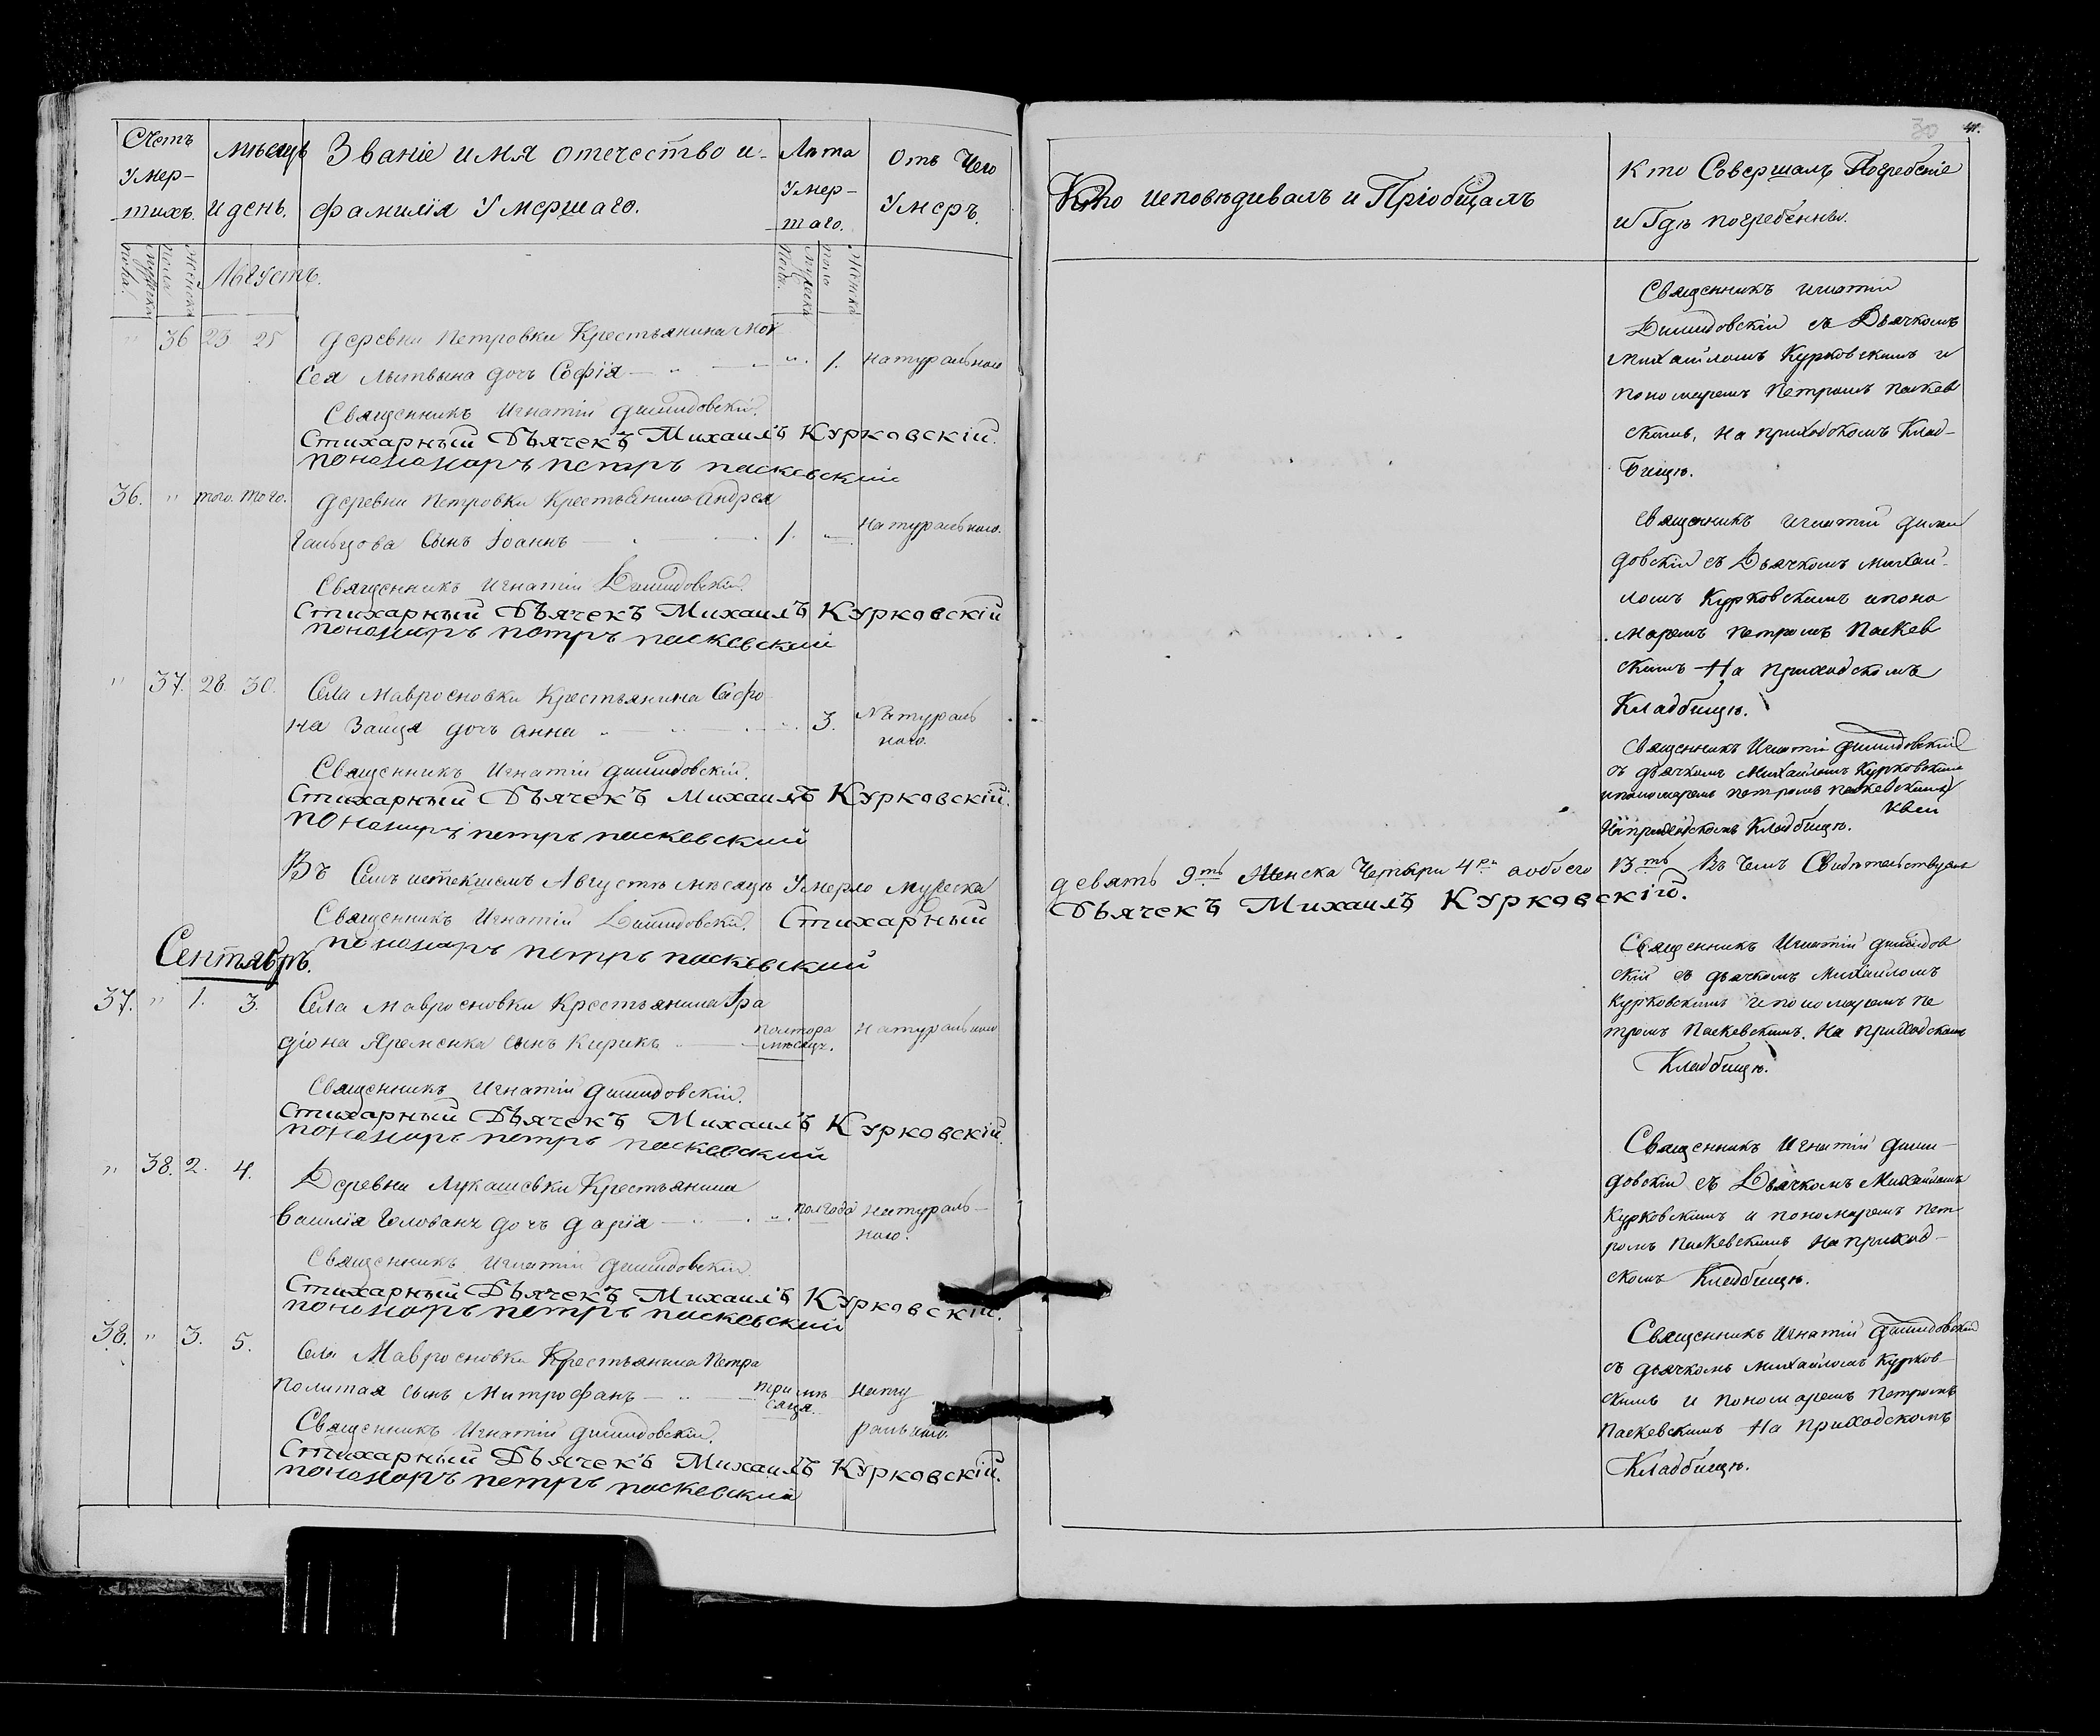 Счетъ Умер-
шихъ.
Мѣсяцъ
и день.
Званіе имя отечество и
фамилія Умершаго.
Лѣта
Умер-
шаго.
Отъ Чего
Умеръ.
Августъ.
" 36 23 25 деревни Петровки Крестьянина Мой
сея Литвына дочь Софія " 1. натуральной
Священникъ Игнатій Дишидовскій.
Стихарный Дьячекъ Михаилъ Курковскій.
пономаръ петръ паскевский
36. " того. того. деревни Петровки Крестьянина Андрея
сынъ Іоаннъ 1. " Натуральною.
Священникъ Игнатій Дишидовскій
Стихарный Дьячекъ Михаилъ Курковскій
пономаръ петръ паскевский
" 37. 28. 30. Села Мавросновки Крестьянина Сафро
на Зайця дочь Анна " 3. Натураль
ного.
Священникъ Игнатій Дишидовскій.
Стихарный Дьячекъ Михаилъ Курковскій.
пономаръ петръ паскевский
Въ Семъ истекшемъ Августѣ мѣсяцѣ Умерло мужеска
Священникъ Игнатій Дишидовскій. Стихарный
пономаръ петръ паскевский
Сентябръ.
37. " 1. 3. Села Мавросновки Крестьянина Іра
діона Яременка сынъ Кирикъ полтора
мѣсяца. натуральною
Священникъ Игнатій Дишидовскій.
Стихарный Дьячекъ Михаилъ Курковскій.
пономаръ петръ паскевский
" 38. 2. 4. Деревни Лукашевки Крестьянина
Василія Голованя дочь Дарія полгода натураль-
ного.
Священникъ Игнатій Дишидовскій
Стихарный Дьячекъ Михаилъ Курковскій.
пономаръ петръ паскевский
38. " 3. 5. Села Мавросновки Крестьянина Петра
Политая сынъ Митрофанъ три мѣ
сяца. нату
рального.
Священникъ Игнатій Дишидовскій.
Стихарный Дьячекъ Михаилъ Курковскій.
пономаръ петръ паскевский
30
Кто исповѣдивалъ и Пріобщалъ
Кто Совершалъ Погребеніе
и Гдѣ погребенны.
Священникъ Игнатій
Дишидовскій съ Дьячкомъ
Михайломъ Курковскимъ и
пономаремъ Петромъ Паскев
скимъ, На приходскомъ Клад-
бищѣ.
Священникъ Игнатій Диши
довскій съ Дьячкомъ Михай-
ломъ Курковскимъ и поно
маремъ Петромъ Паскев
скимъ На приходскомъ
Кладбищѣ.
Священникъ Игнатій Дишидовскій
съ дьячкомъ Михайломъ Курковскимъ
и пономаремъ петромъ паскевскимъ
На приходскомъ Кладбищѣ.
девять 9ть Женска Четыри 4ри а обоего 13ть Въ Чемъ Свидѣтельствуемъ
Дьячекъ Михаилъ Курковскій.
Священникъ Игнатій Дишидов
скій съ дьячкомъ Михайломъ
Курковскимъ и пономаремъ Пе
тромъ Паскевскимъ. На приходскомъ
Кладбищѣ.
Священникъ Игнатій Диши-
довскій съ Дьячкомъ Михайломъ
Курковскимъ и пономаремъ Пет
ромъ Паскевскимъ На приход-
скомъ Кладбищѣ.
Священникъ Игнатій Дишидовскій
съ дьячкомъ Михайломъ Курков-
скимъ и пономаремъ Петромъ
Паскевскимъ На приходскомъ
Кладбищѣ.